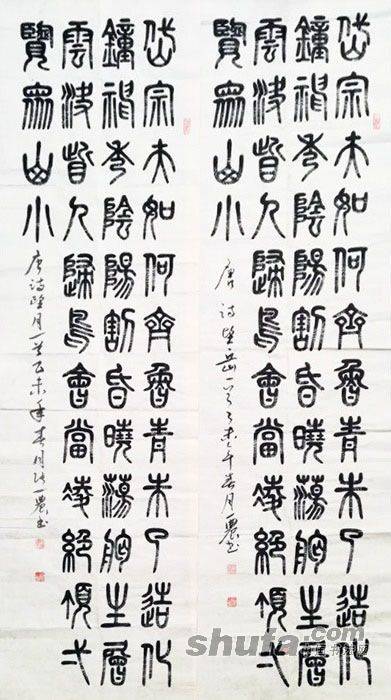 岱宗夫如何齊魯青未了造化
鐘神秀陰陽割昏曉蕩胸生層
雲決眥入歸鳥會當凌絕頂弌
覽眾山小
唐詩望岳一首乙未年春月一農书
岱宗夫如何齊魯青未了造化
鐘神秀陰陽割昏曉蕩胸生層
雲決眥入歸鳥會當凌絕頂弌
覽眾山小
唐詩望一首乙未年春月一農书
shufa.com